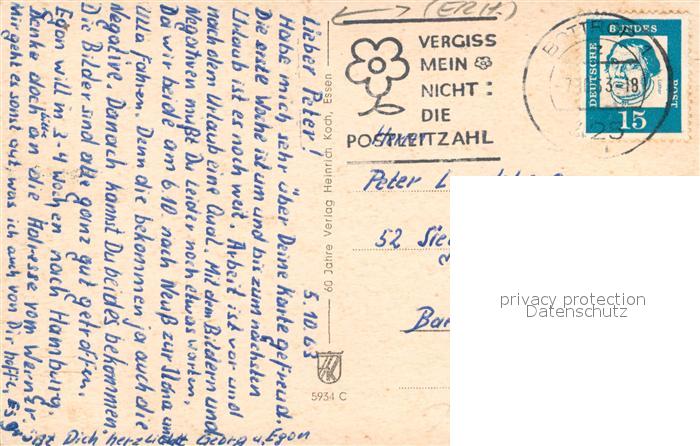 (ERH.)
VERGISS
MEIN
NICHT:
DIE
POSTLEITZAHL
BOTTROP
-18
DEUTSCHE BUNDES POST
15
Herrn
Peter
52 Sie
privacy protection
Datenschutz
60 Jahre Verlag Heinrich Koch, Essen
5934 C
5.10.63
Lieber Peter!
Habe mich sehr über Deine Karte gefreut.
Die erste Woche ist um und bis zum nächsten
Urlaub ist es noch weit. Arbeit ist vor und
nach dem Urlaub eine Qual. Mit den Bildern und
Negativen mußt Du leider noch etwas warten.
Da wir beide am 6.10 nach Neuß zur Ilona und
Ulla fahren. Denn die bekommen ja auch die
Negative. Danach kannst Du beides bekommen.
Die Bilder sind alle ganz gut getroffen.
Egon will in 3-4 Wochen nach Hamburg.
Denke doch an die Adresse vom Werner.
Mir geht es sonst gut, was ich auch von Dir hoffe. Es
grüßt Dich herzlichst Georg u. Egon